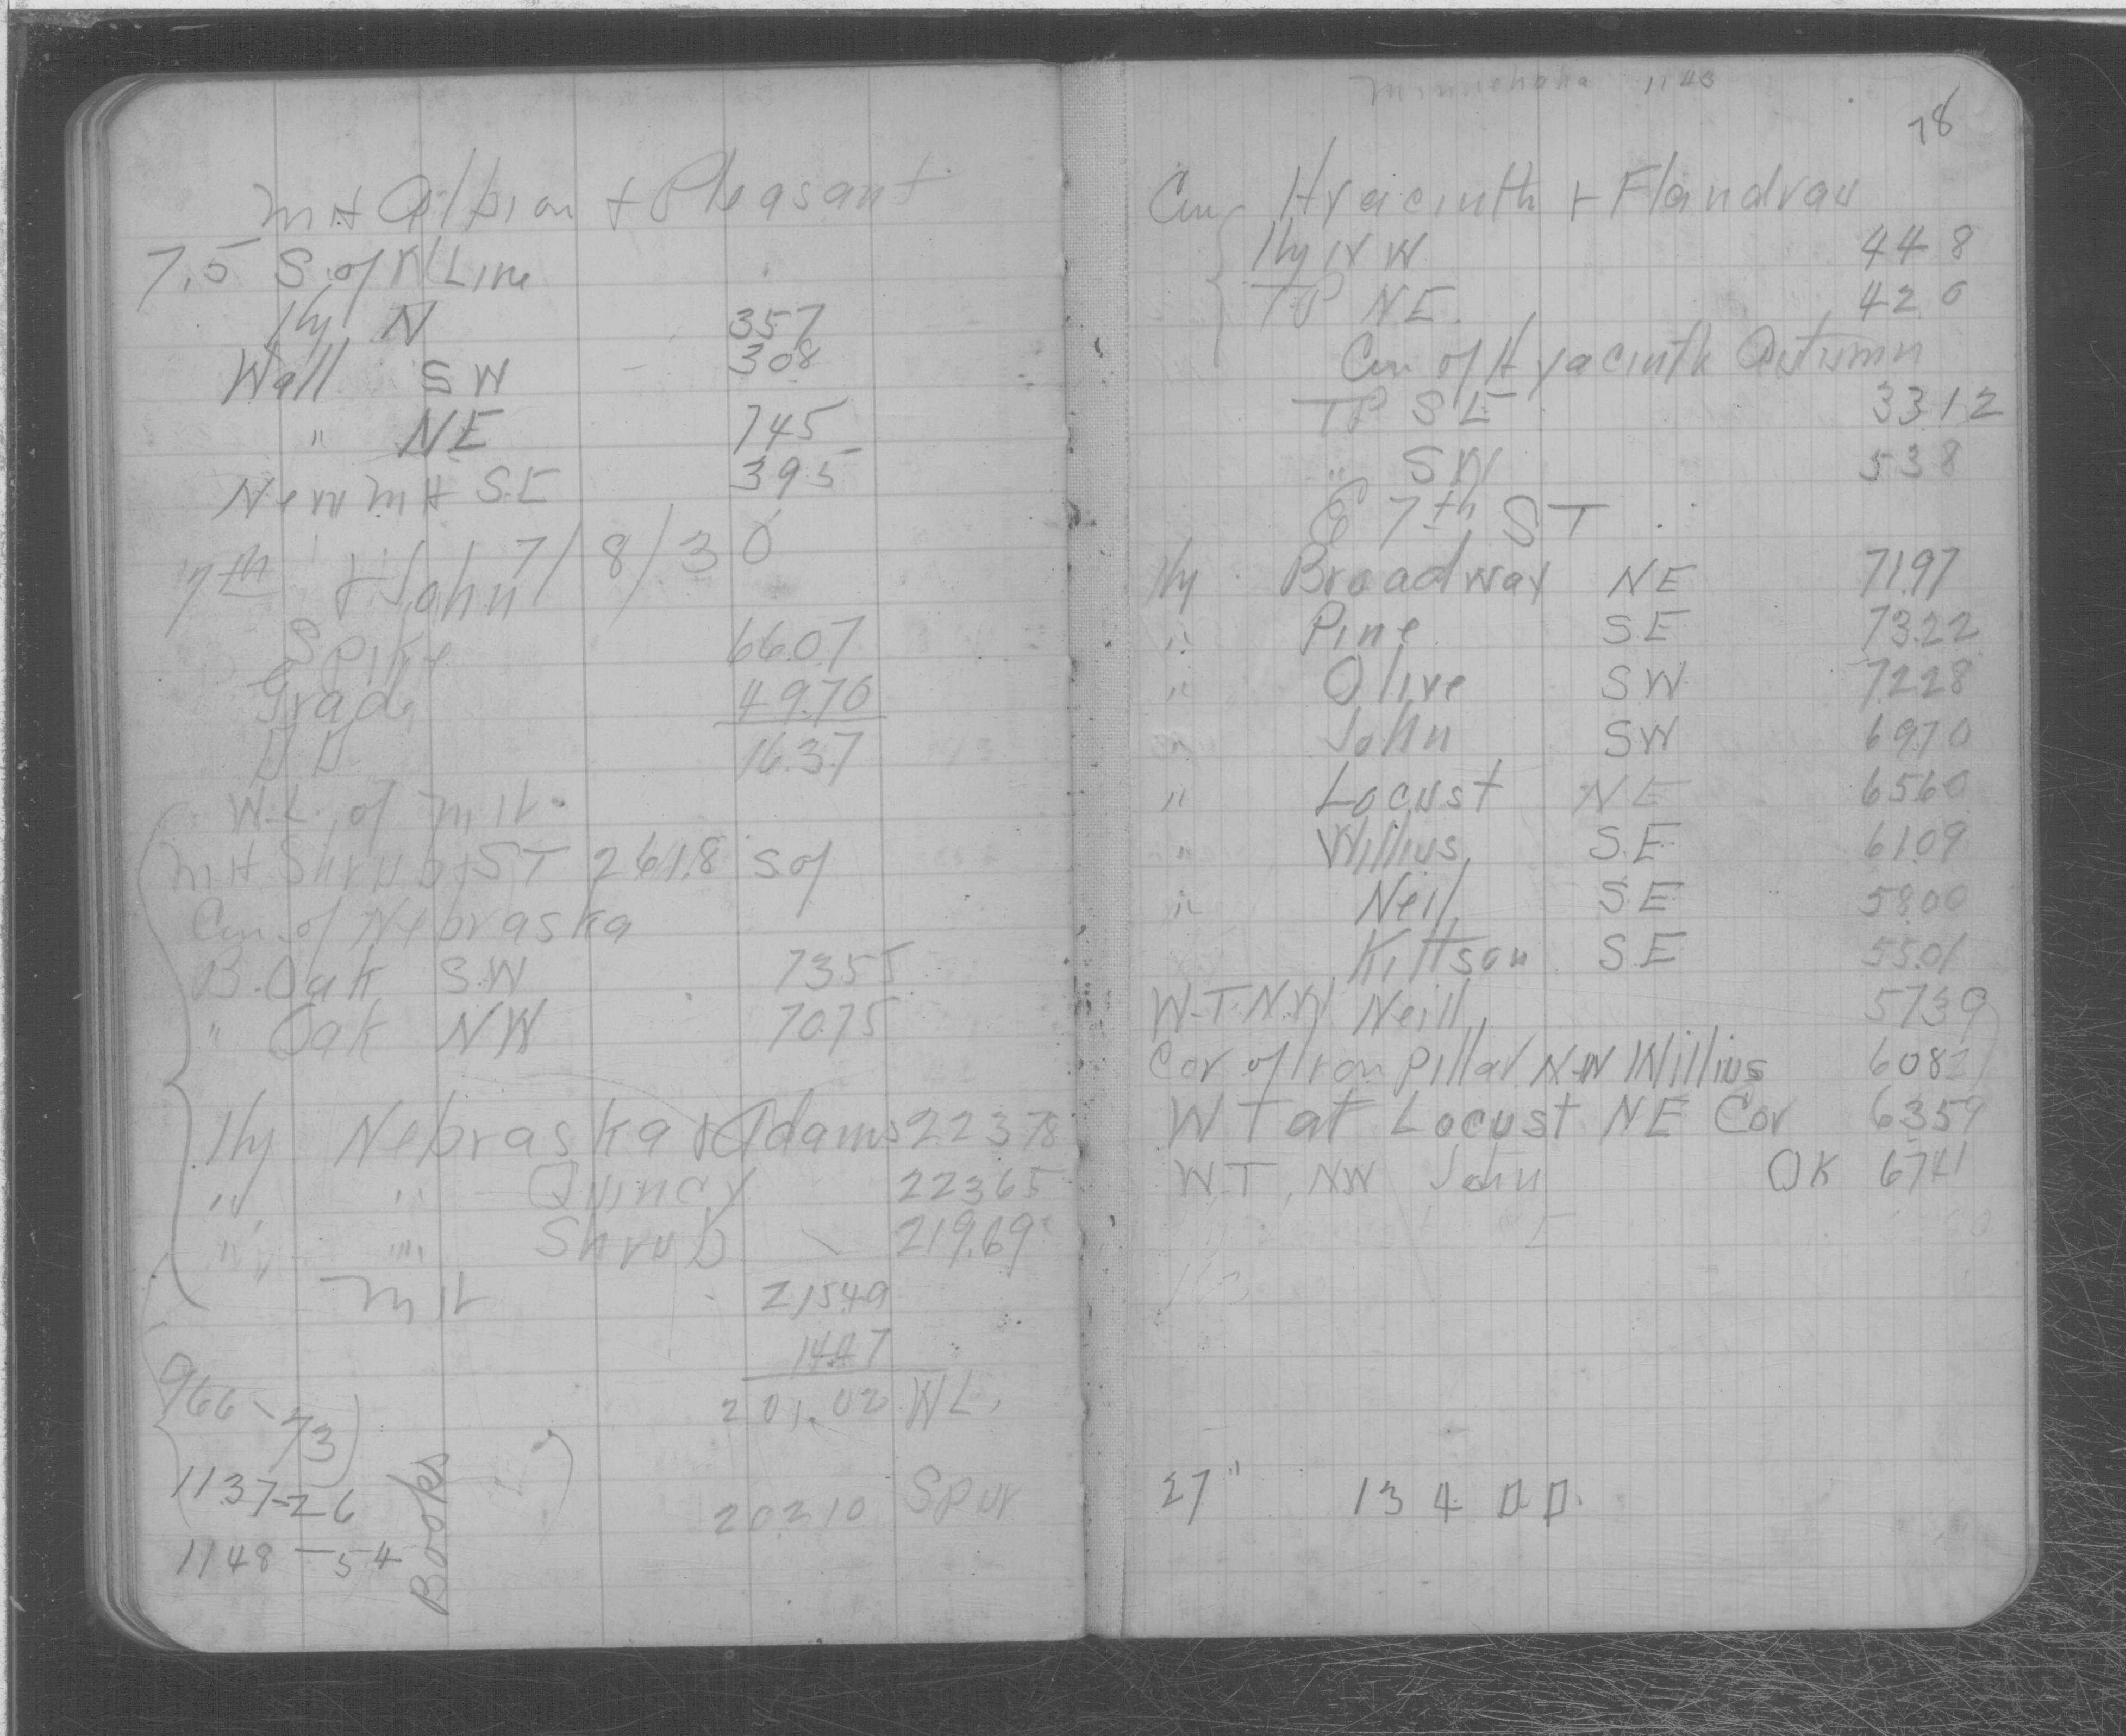 MH Albion + Pleasant
7.5 S. of N Line
Hy N 357
Wall SW 308
" NE 745
New MH S.E 395
7th + John 7/8/30
Spike 66.07
Grade 49.70
16.37
W.L. of MH.
MH Shrub ST 261.8 S of
Cen. of Nebraska
B. Oak S.W 7355
" Oak NW 7075
Hy Nebraska & Adams 22378
" " Quincy 22365
" " Shrub 219.69
MH 21549
1447
201.02 WL.
966-73
1137-26
1148-54
Books
20210 Spur
Minnehaha 1143
78
Cen Hyacinth + Flandrau
Hy NW 448
TP NE. 420
Cen of Hyacinth Autumn
TP SE 33.12
" SW 538
E 7th ST
Hy Broadway NE 71.97
" Pine SE 73.22
" Olive SW 72.28
" John SW 6970
" Locust NE 6560
" Willius SE 61.09
" Neill SE 58.00
Kittson SE 55.01
W.T. N.W Neill 5739
Cor of Iron Pillar N.W Willius 608
WT at Locust NE Cor 6359
W.T. NW John OK 6741
27" 134